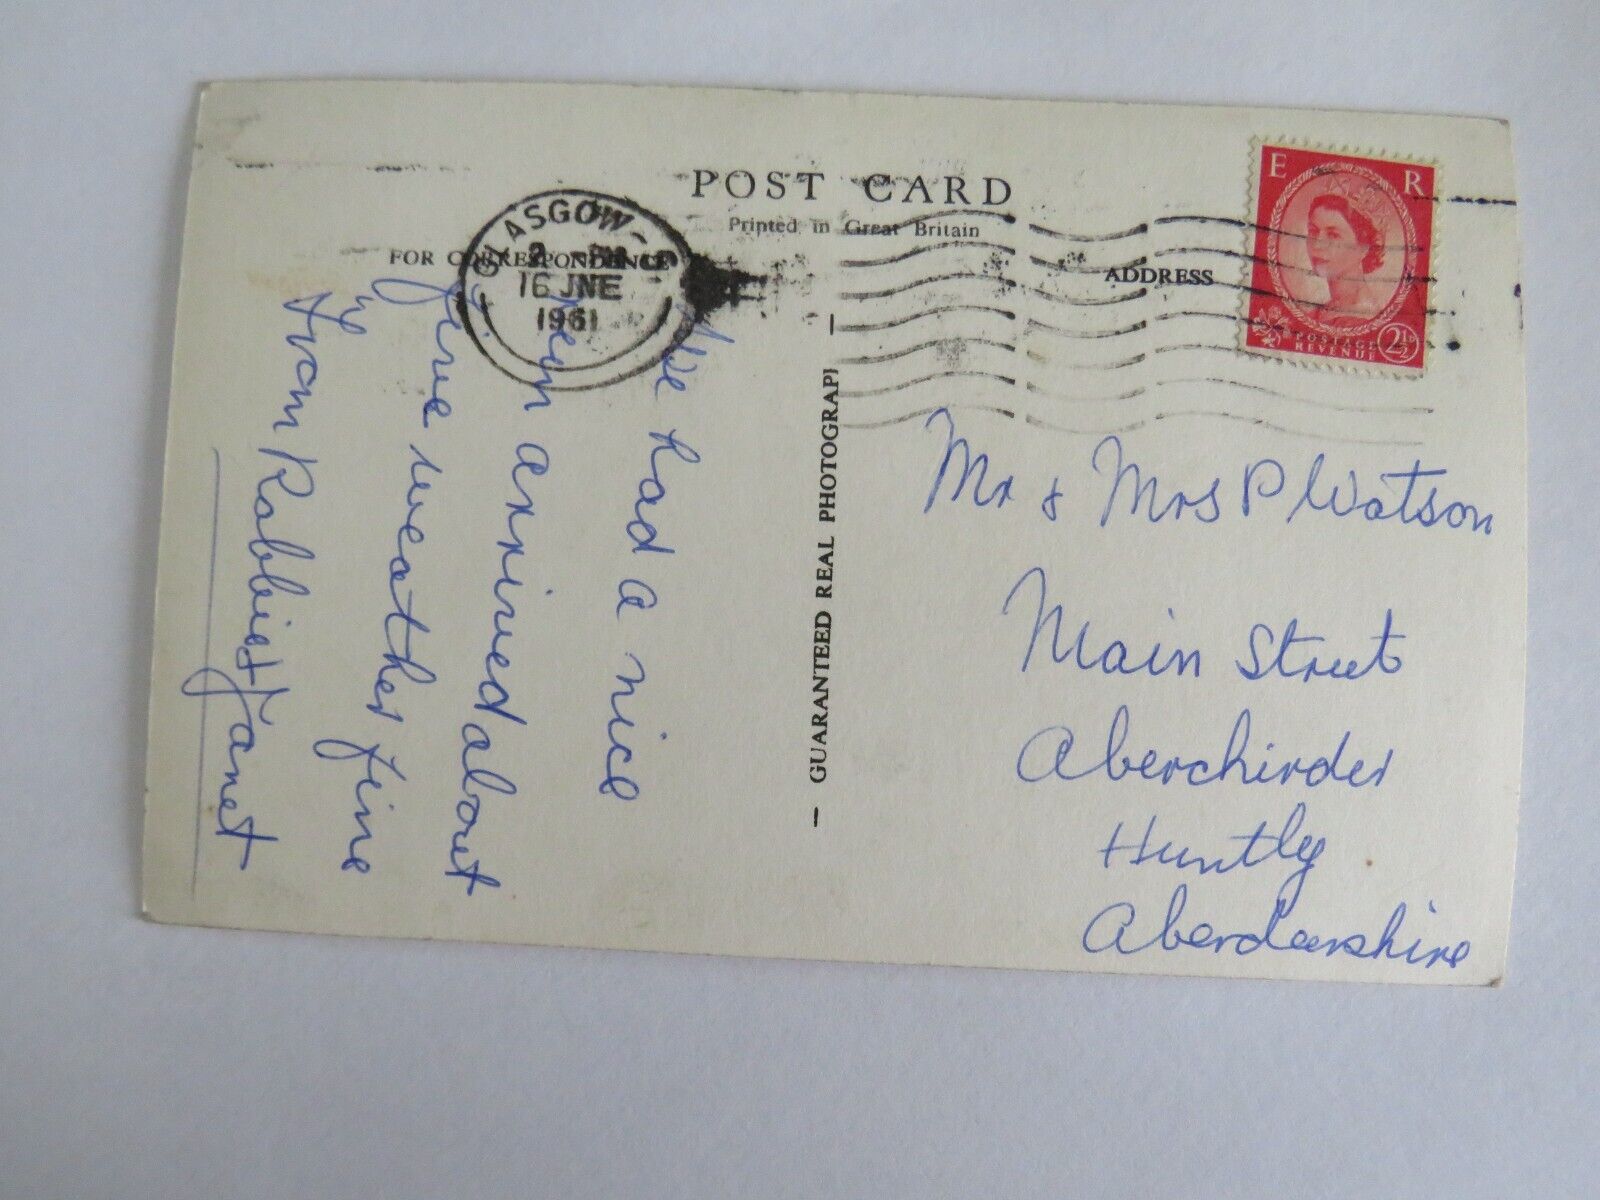 POST CARD
Printed in Great Britain
FOR CORRESPONDENCE
ADDRESS
GLASGOW
2
16 JNE
1961
E R
POSTAGE
REVENUE
2½D
— GUARANTEED REAL PHOTOGRAPH —
We had a nice
arrived about
five weather fine
From Robbie & Janet
Mr & Mrs P Watson
Main Street
Aberchirder
Huntly
Aberdeenshire